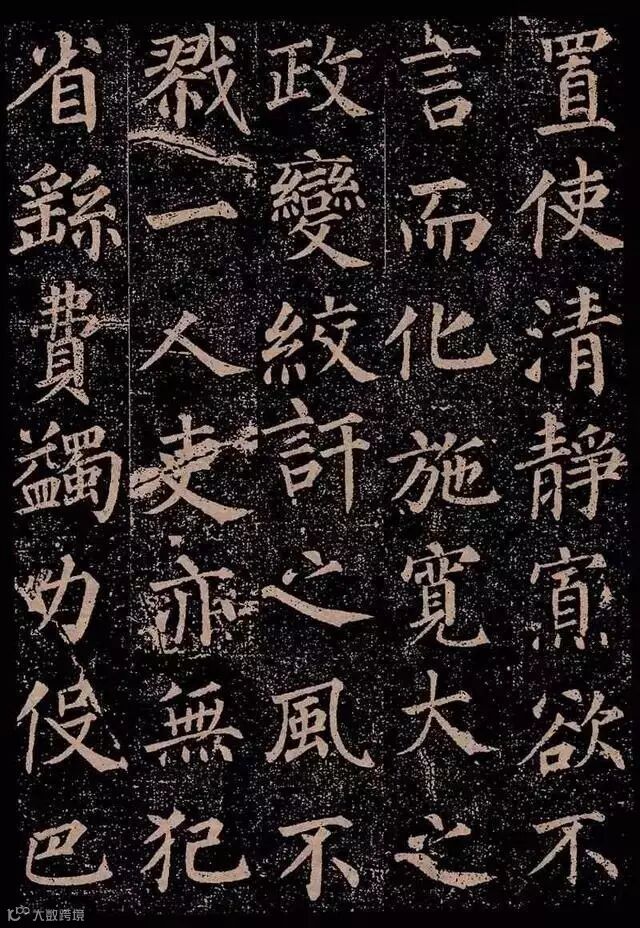 置使清靜寡欲不
言而化施寬大之
政變絞訐之風不
戮一人吏亦無犯
省繇費蠲力伇巴
大数跨境